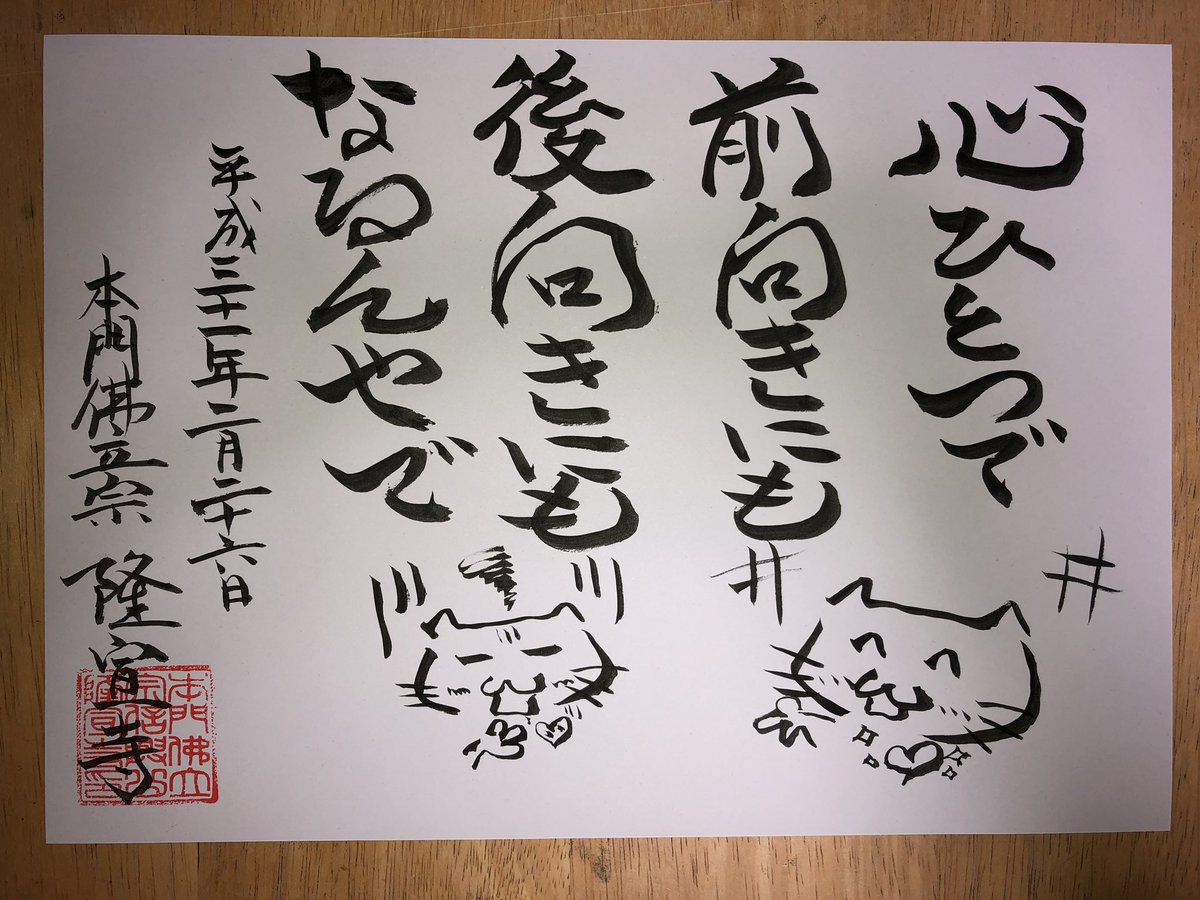 心ひとつで
前向きにも
後向きにも
なるんやで
平成三十一年二月二十六日
本門佛立宗 隆宣寺